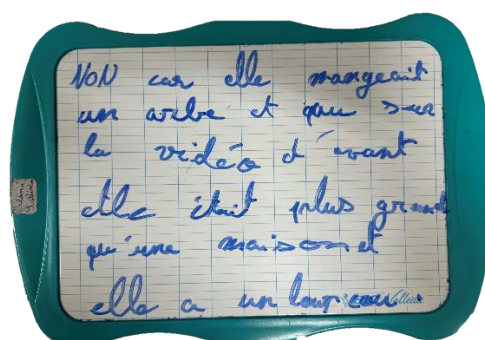 NON car elle mangeait
un arbre et que sur
la vidéo d'avant
elle était plus grand
qu'une maison et
elle a un long cou